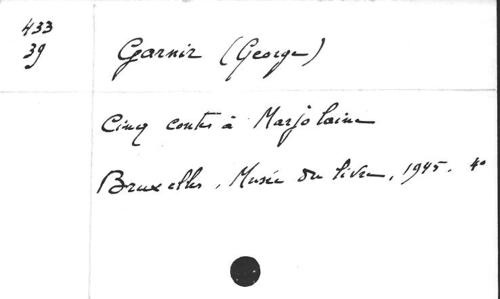 433
39
Garnir (George)
Cinq contes à Marjolaine
Bruxelles, Musée du livre, 1945. 4°